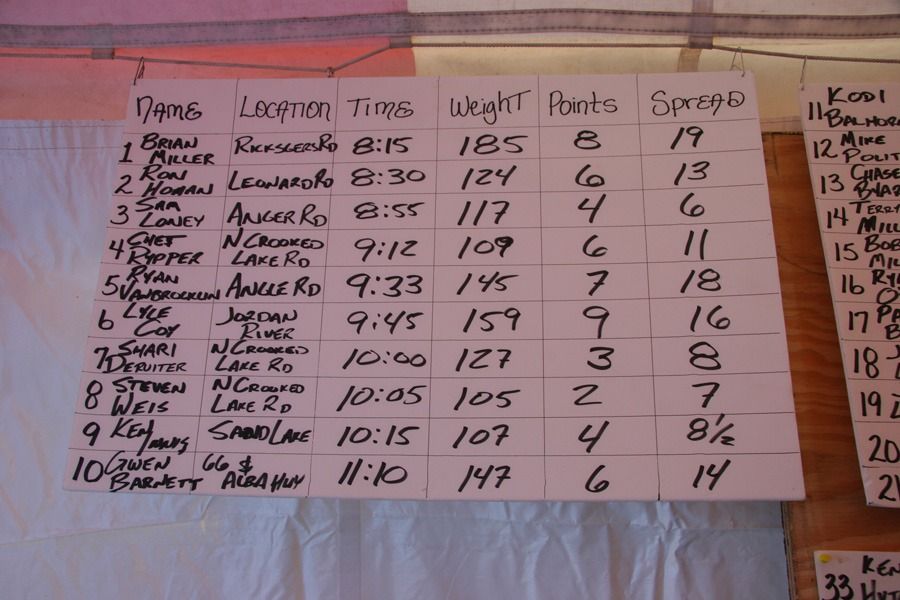 NAME LOCATION TIME WEIGHT POINTS SPREAD
1 BRIAN MILLER RICKSGERS RD 8:15 185 8 19
2 RON HOMAN LEONARD RD 8:30 124 6 13
3 SAM LONEY ANGER RD 8:55 117 4 6
4 CHET RYPPER N CROOKED LAKE RD 9:12 109 6 11
5 RYAN VANBROCKLIN ANGLE RD 9:33 145 7 18
6 LYLE COY JORDAN RIVER 9:45 159 9 16
7 SHARI DERUITER N CROOKED LAKE RD 10:00 127 3 8
8 STEVEN WEIS N CROOKED LAKE RD 10:05 105 2 7
9 KEN SAND LAKE 10:15 107 4 8½
10 GWEN BARNETT 66 $ ALBA HWY 11:10 147 6 14
11 KODI
12 MIKE POLIT
13 CHASE
14 TERRY MILL
15 BOB MIL
16 RY
17 PA B
18
19
20
21
33 KEN HUT